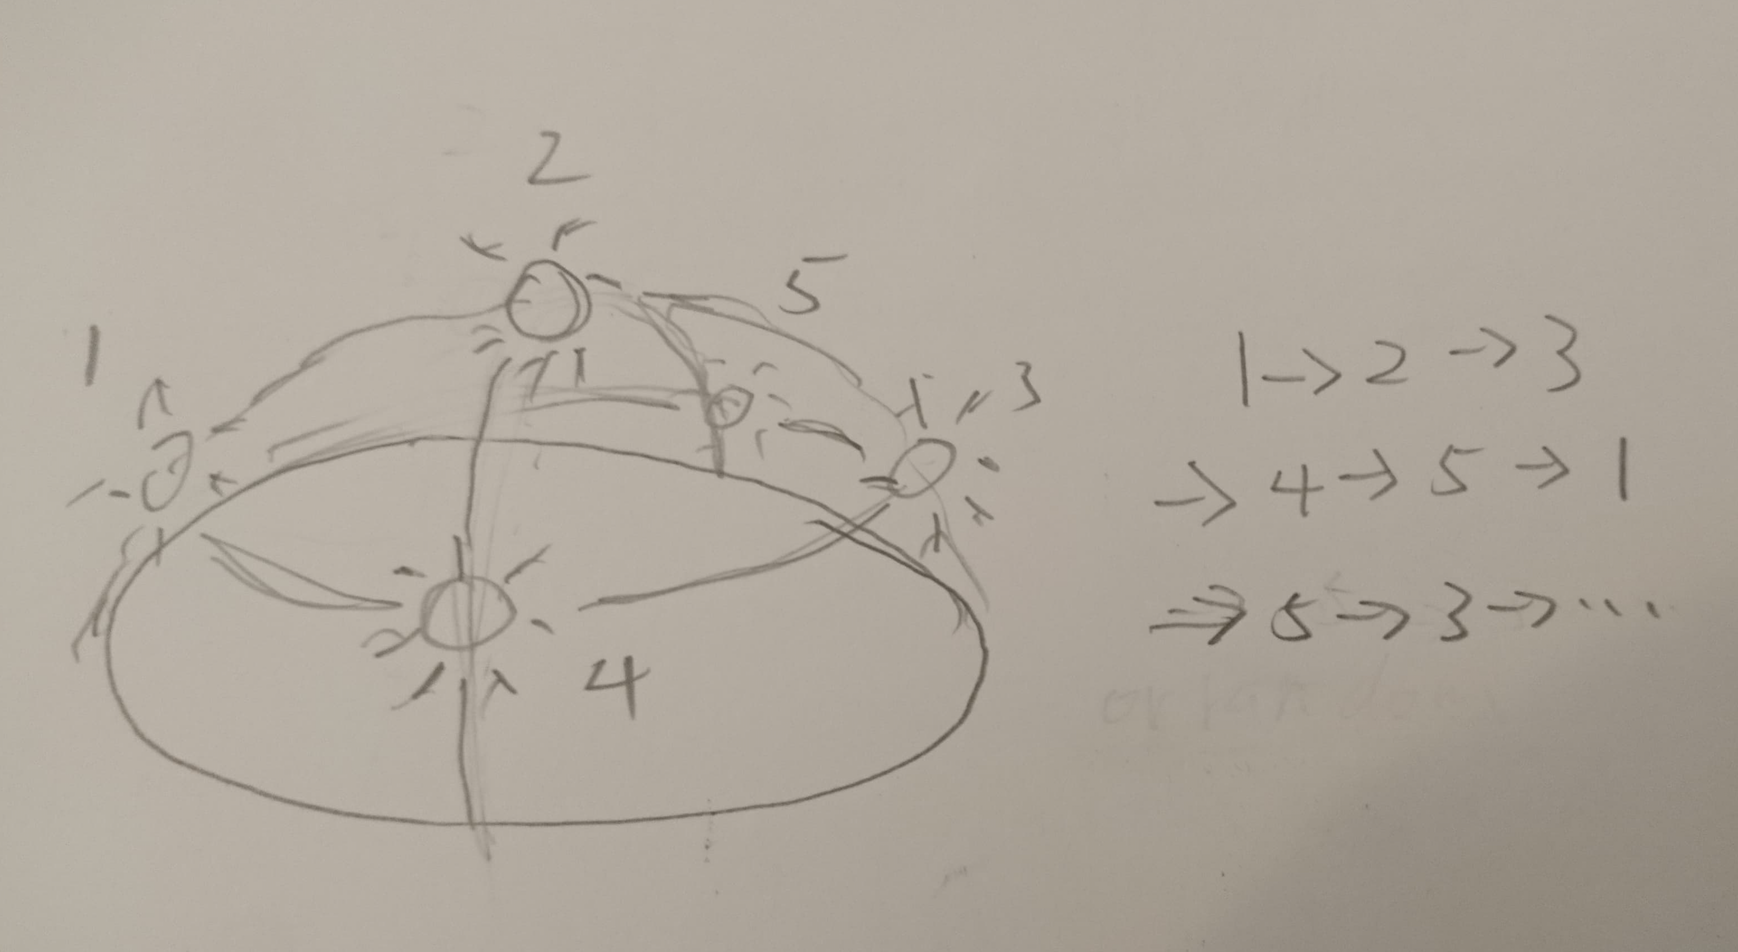 2
5
1
3
4
1 → 2 → 3
→ 4 → 5 → 1
⇒ 5 → 3 → ...
or random